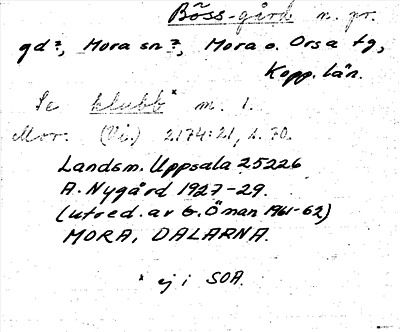 Böss-gård n. pr.
gd?, Mora sn?, Mora o. Orsa tg,
Kopp. län.
Se klubb* m. 1.
Mor. (Vi.) 2174:21, s. 70.
Landsm. Uppsala 25226
A. Nygård 1927-29.
(utred. av G. Öman 1961-62)
MORA, DALARNA.
* ej i SOA.